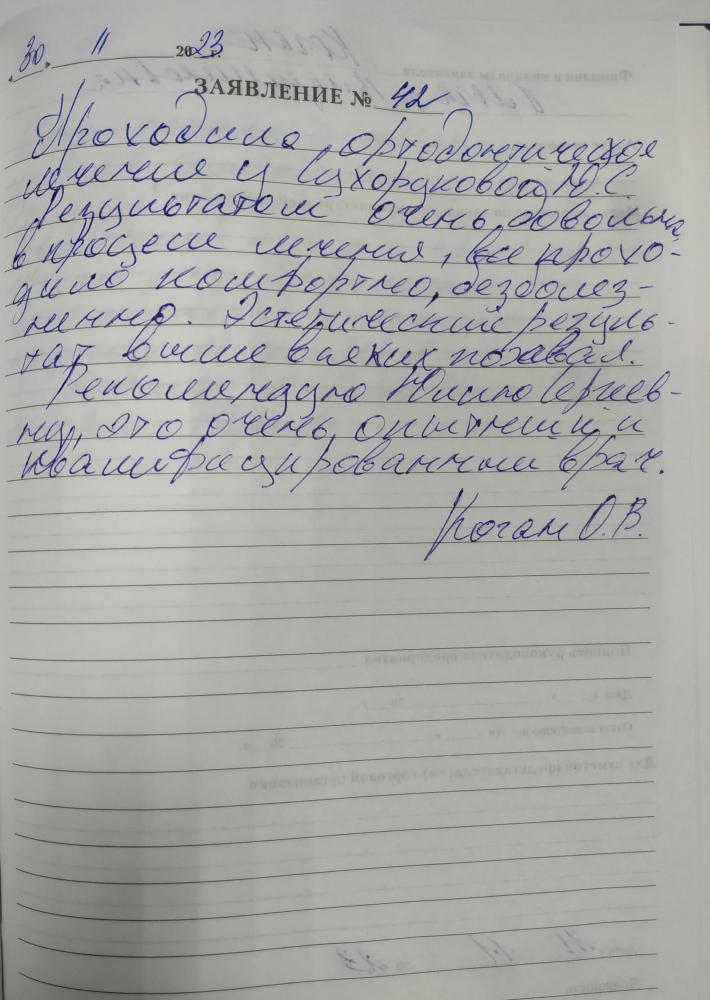 30 11 2023 г.
ЗАЯВЛЕНИЕ № 42
Проходила ортодонтическое
лечение у Сухоруковой Ю.С
Результатом очень довольна,
в процессе лечения, все прохо-
дило комфортно, безболез-
ненно. Эстетический резуль-
тат выше всяких похвал.
Рекомендую Юлию Сергеев-
ну, это очень опытный и
квалифицированный врач.
Коган О.В.